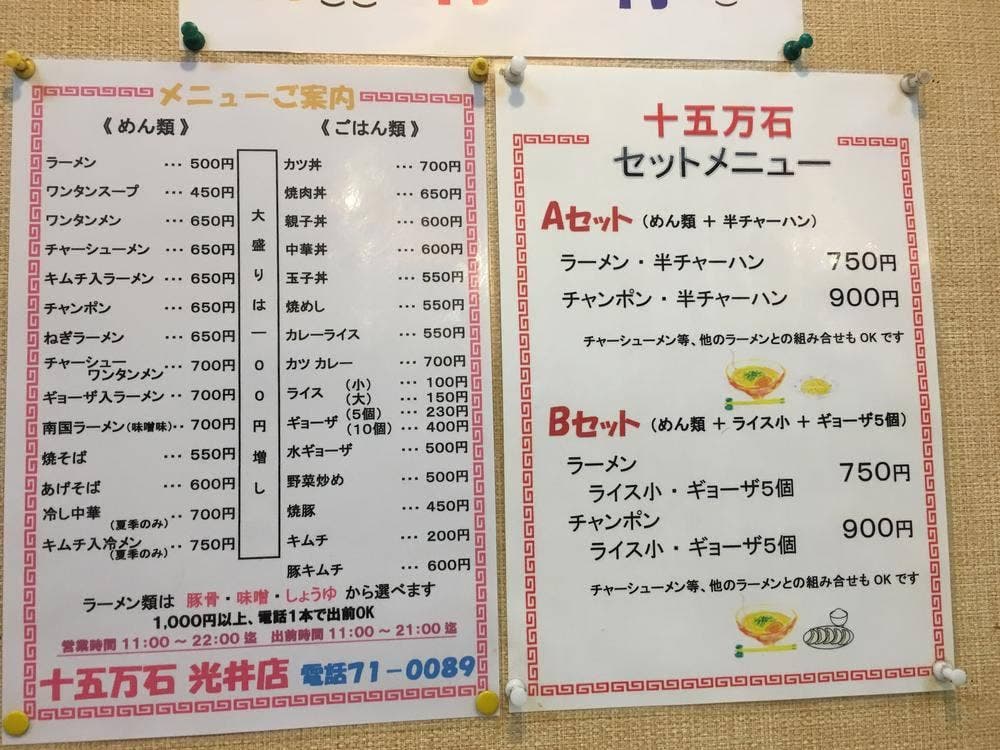 メニューご案内
《めん類》
ラーメン ・・・ 500円
ワンタンスープ ・・・ 450円
ワンタンメン ・・・ 650円
チャーシューメン ・・・ 650円
キムチ入ラーメン ・・・ 650円
チャンポン ・・・ 650円
ねぎラーメン ・・・ 650円
チャーシュー
ワンタンメン ・・ 700円
ギョーザ入ラーメン ・・ 700円
南国ラーメン(味噌味)・・ 700円
焼そば ・・・ 550円
あげそば ・・・ 600円
冷し中華 (夏季のみ) ・・ 700円
キムチ入冷メン (夏季のみ) ・・ 750円
大盛りは一〇〇円増し
《ごはん類》
カツ丼 ・・・ 700円
焼肉丼 ・・・ 650円
親子丼 ・・・ 600円
中華丼 ・・・ 600円
玉子丼 ・・・ 550円
焼めし ・・・ 550円
カレーライス ・・・ 550円
カツ カレー ・・・ 700円
ライス (小) ・・・ 100円
(大) ・・・ 150円
ギョーザ (5個) ・・・ 230円
(10個) ・・・ 400円
水ギョーザ ・・・ 500円
野菜炒め ・・・ 500円
焼豚 ・・・ 450円
キムチ ・・・ 200円
豚キムチ ・・・ 600円
ラーメン類は 豚骨・味噌・しょうゆ から選べます
1,000円以上、電話1本で出前OK
営業時間 11:00～22:00迄 出前時間 11:00～21:00迄
十五万石 光井店 電話71-0089
十五万石
セットメニュー
Aセット (めん類 + 半チャーハン)
ラーメン・半チャーハン 750円
チャンポン・半チャーハン 900円
チャーシューメン等、他のラーメンとの組み合せも OK です
Bセット (めん類 + ライス小 + ギョーザ5個)
ラーメン
ライス小・ギョーザ5個 750円
チャンポン
ライス小・ギョーザ5個 900円
チャーシューメン等、他のラーメンとの組み合せも OK です